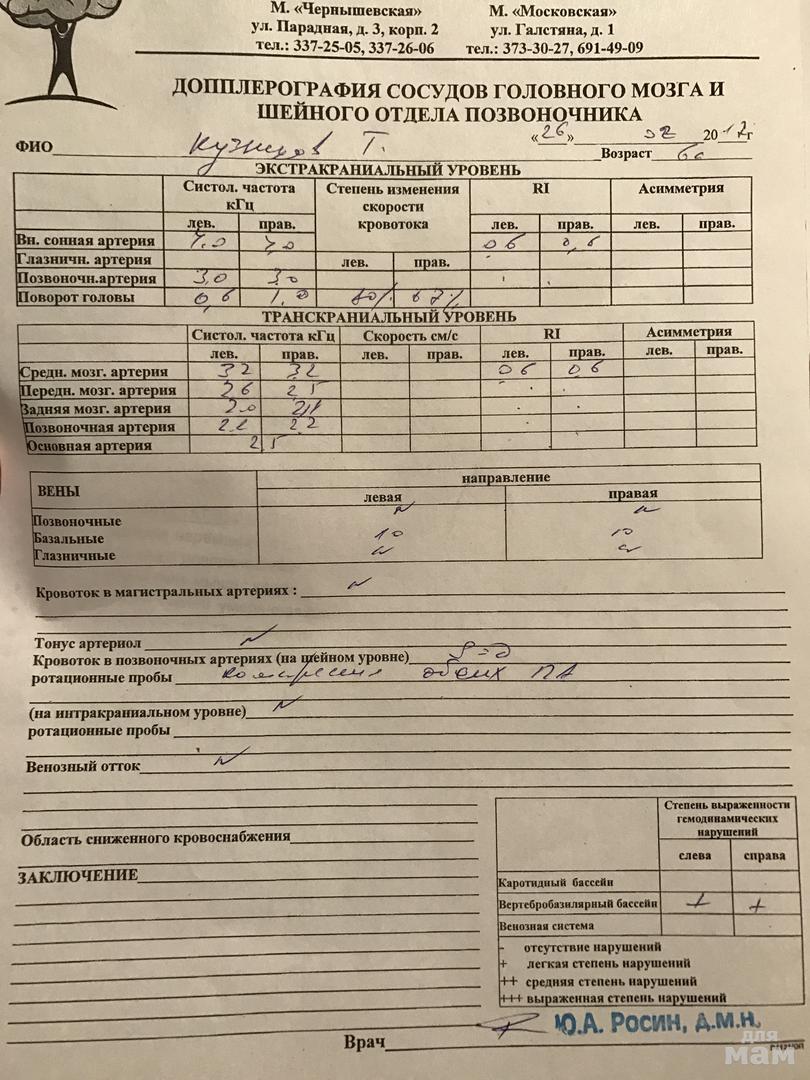 М. «Чернышевская» М. «Московская»
ул. Парадная, д. 3, корп. 2 ул. Галстяна, д. 1
тел.: 337-25-05, 337-26-06 тел.: 373-30-27, 691-49-09
ДОППЛЕРОГРАФИЯ СОСУДОВ ГОЛОВНОГО МОЗГА И
ШЕЙНОГО ОТДЕЛА ПОЗВОНОЧНИКА
«26» 02 2017г
ФИО Т. Возраст
ЭКСТРАКРАНИАЛЬНЫЙ УРОВЕНЬ
Систол. частота кГц Степень изменения скорости кровотока RI Асимметрия
лев. прав. лев. прав. лев. прав.
Вн. сонная артерия 7.0 7.0 06 0,6
Глазничн. артерия лев. прав.
Позвоночн.артерия 3,0 3,0
Поворот головы 0,6 1,0 80% 67%
ТРАНСКРАНИАЛЬНЫЙ УРОВЕНЬ
Систол. частота кГц Скорость см/с RI Асимметрия
лев. прав. лев. прав. лев. прав. лев. прав.
Средн. мозг. артерия 32 32 06 06
Передн. мозг. артерия 26 25
Задняя мозг. артерия 20 21
Позвоночная артерия 22 22
Основная артерия 25
ВЕНЫ направление
левая правая
Позвоночные N N
Базальные 10 10
Глазничные N N
Кровоток в магистральных артериях : N
Тонус артериол N
Кровоток в позвоночных артериях (на шейном уровне) S=D
ротационные пробы компрессия обеих ПА
(на интракраниальном уровне) N
ротационные пробы
Венозный отток N
Область сниженного кровоснабжения
ЗАКЛЮЧЕНИЕ
Степень выраженности гемодинамических нарушений
слева справа
Каротидный бассейн
Вертебробазилярный бассейн + +
Венозная система
- отсутствие нарушений
+ легкая степень нарушений
++ средняя степень нарушений
+++ выраженная степень нарушений
Врач Ю.А. РОСИН, Д.М.Н.
для
мам